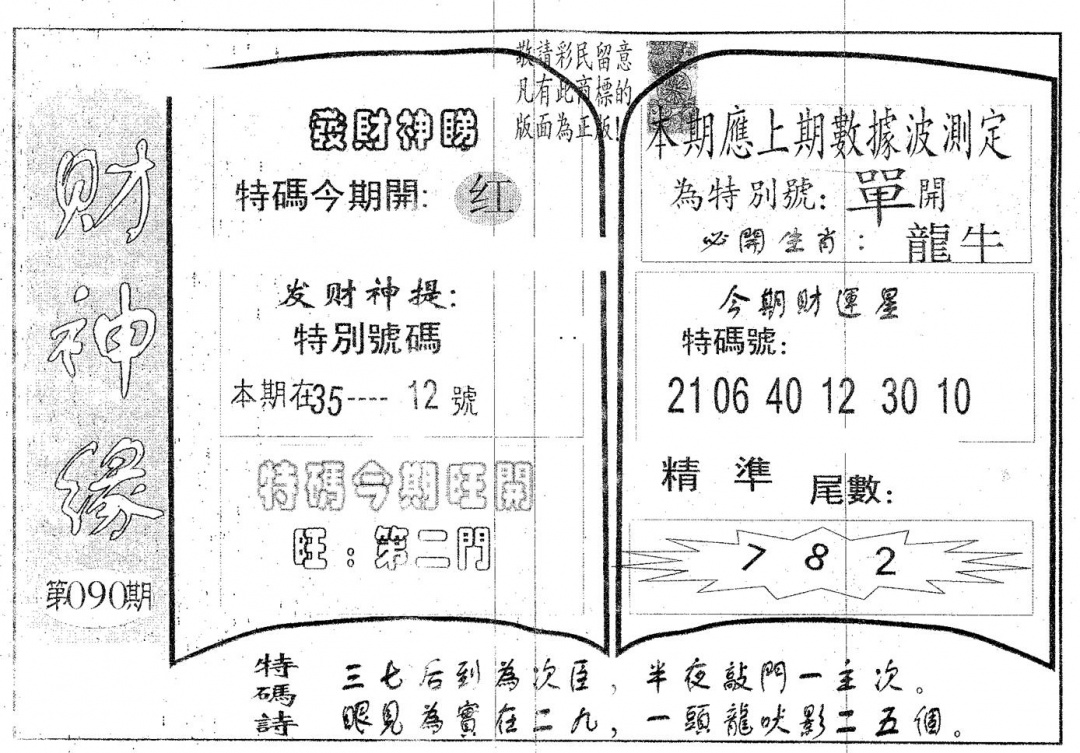 財神緣
第090期
敬請彩民留意
凡有此商標的
版面為正版!
發財神睇
特碼今期開: 红
发财神提:
特別號碼
本期在35---- 12 號
特碼今期旺開
旺:第二門
本期應上期數據波測定
為特別號: 單開
必開生肖: 龍牛
今期財運星
特碼號:
21 06 40 12 30 10
精準 尾數:
7 8 2
特碼詩
三七后到為次臣, 半夜敲門一主次。
眼見為實在二九, 一頭龍吠影二五個。